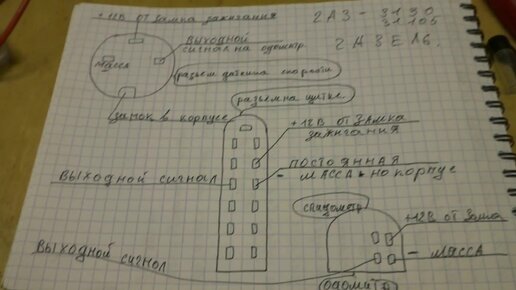 +12В ОТ ЗАМКА ЗАЖИГАНИЯ
ГАЗ - 3130
31105
ГАЗЕЛЬ.
ВЫХОДНОЙ
СИГНАЛ НА ОДОМЕТР.
МАССА
РАЗЬЕМ ДАТЧИКА СКОРОСТИ
ЗАМОК В КОРПУСЕ
РАЗЬЕМ НА ЩИТКЕ.
+12В ОТ ЗАМКА
ЗАЖИГАНИЯ
ПОСТОЯННАЯ
- МАССА НА КОРПУС
ВЫХОДНОЙ СИГНАЛ
СПИДОМЕТР
+12В ОТ
- МАССА
ВЫХОДНОЙ
СИГНАЛ
ОДОМЕТР